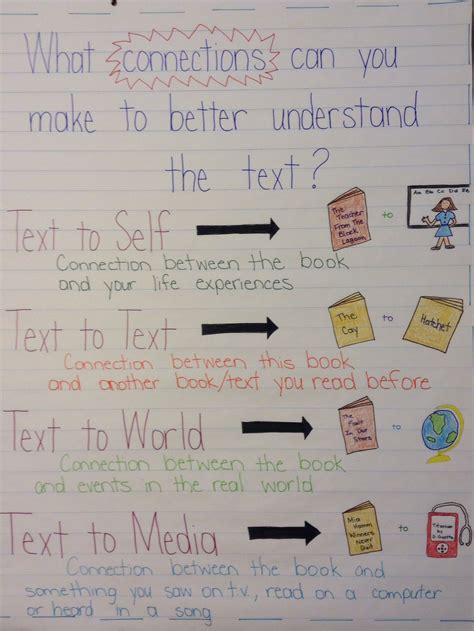 What connections can you
make to better understand
the text?
Text to Self
The
Teacher
From The
Black
Lagoon
to
Aa Bb Cc Dd Ee
Connection between the book
and your life experiences
Text to Text
The
Cay
to
Hatchet
Connection between this book
and another book/text you read before
Text to World
The
Fault
In Our
Stars
to
Connection between the book
and events in the real world
Text to Media
Mia
Hamm
Winners
Never
Quit
to
Titanium
by
D. Guetta
Connection between the book and
something you saw on t.v., read on a computer
or heard in a song